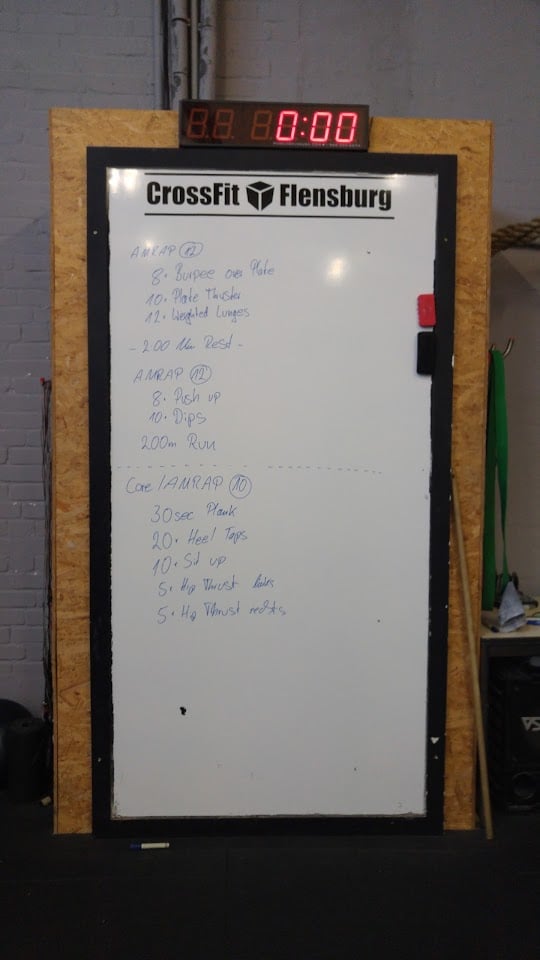 0:00
CrossFit Flensburg
AMRAP 12
8x Burpee over Plate
10x Plate Thruster
12x Weighted Lunges
- 2:00 Min Rest -
AMRAP 12
8x Push up
10x Dips
200m Run
Core / AMRAP 10
30sec Plank
20x Heel Taps
10x Sit up
5x Hip Thrust links
5x Hip Thrust rechts